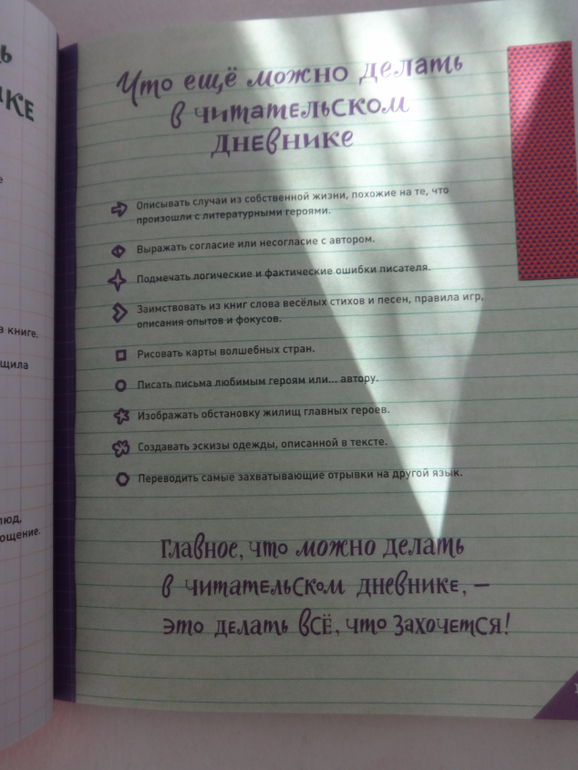 Что ещё можно делать
в читательском
дневнике
Описывать случаи из собственной жизни, похожие на те, что
произошли с литературными героями.
Выражать согласие или несогласие с автором.
Подмечать логические и фактические ошибки писателя.
Заимствовать из книг слова весёлых стихов и песен, правила игр,
описания опытов и фокусов.
Рисовать карты волшебных стран.
Писать письма любимым героям или... автору.
Изображать обстановку жилищ главных героев.
Создавать эскизы одежды, описанной в тексте.
Переводить самые захватывающие отрывки на другой язык.
Главное, что можно делать
в читательском дневнике, —
это делать всё, что захочется!
книге.